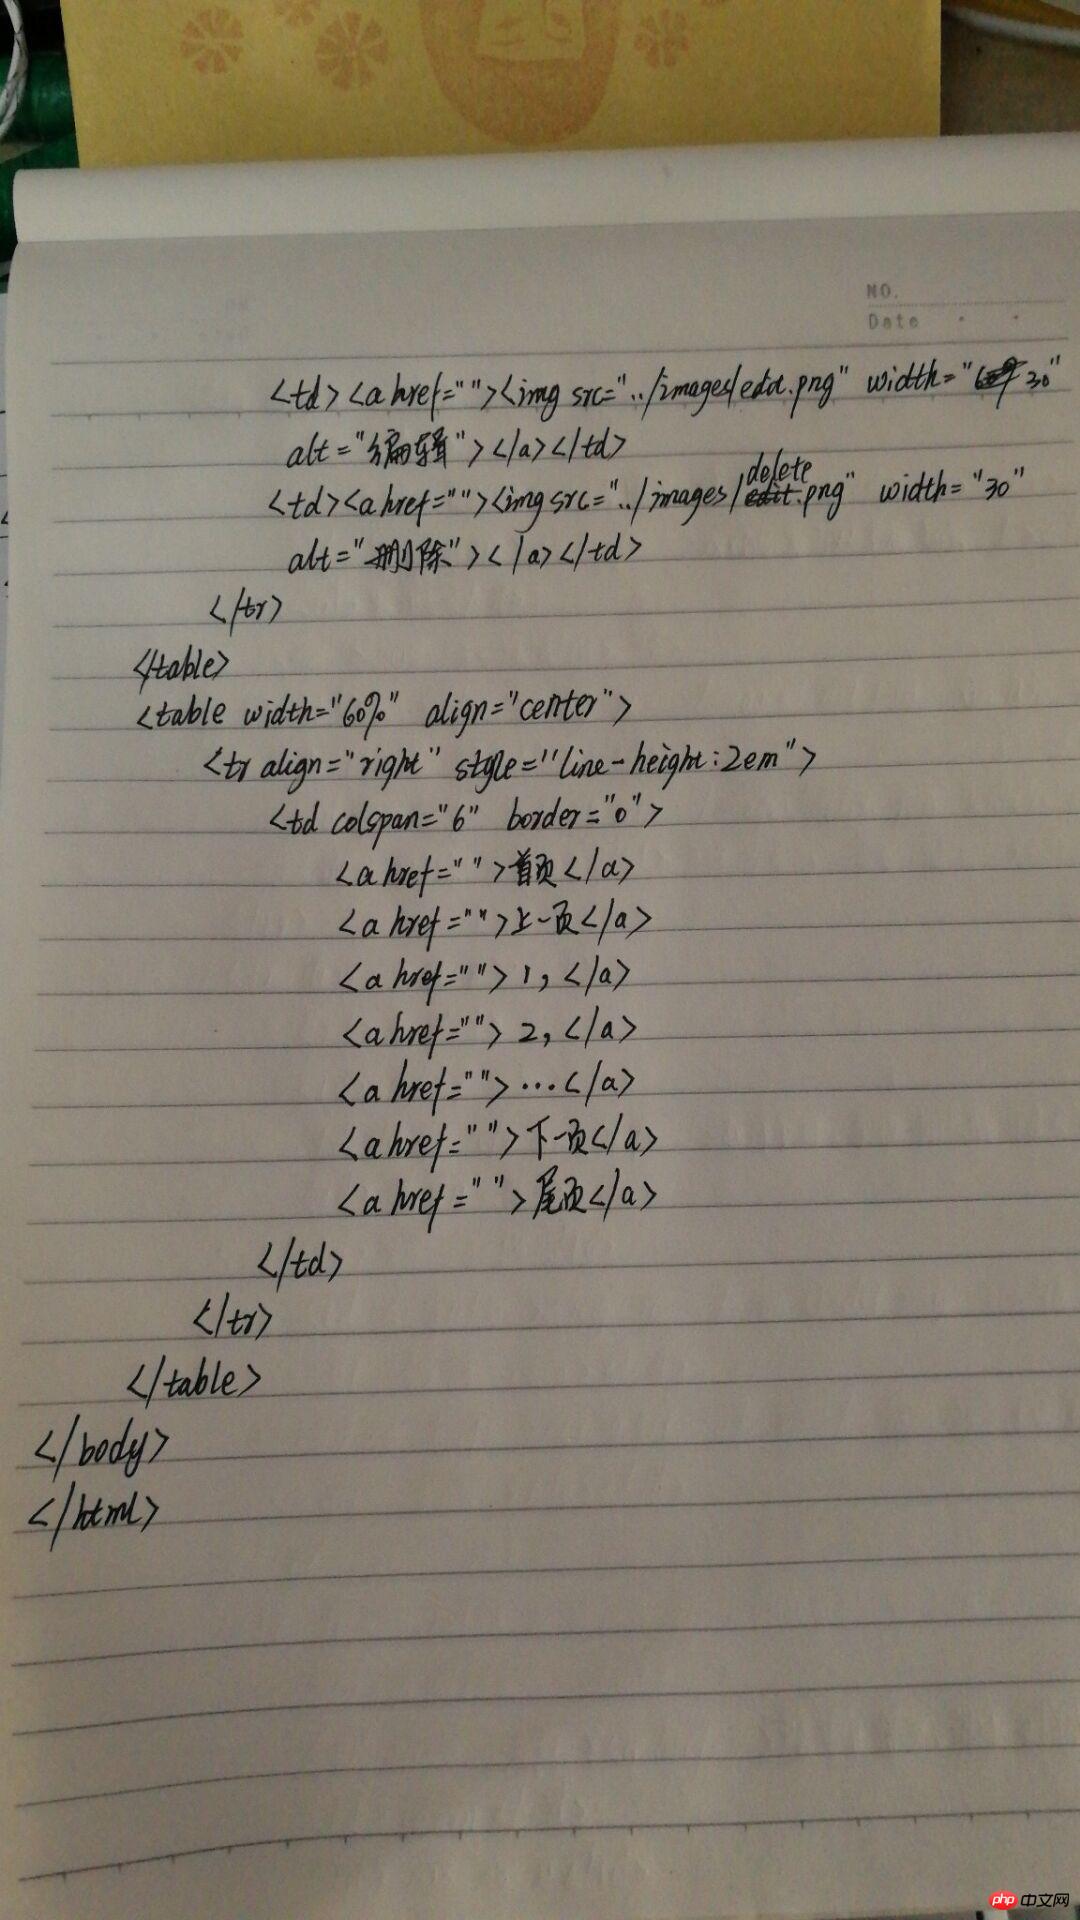 NO.
Date
<td><a href=""><img src="../images/edit.png" width="30"
alt="编辑"></a></td>
<td><a href=""><img src="../images/delete.png" width="30"
alt="删除"></a></td>
</tr>
</table>
<table width="60%" align="center">
<tr align="right" style="line-height:2em">
<td colspan="6" border="0">
<a href="">首页</a>
<a href="">上一页</a>
<a href="">1,</a>
<a href="">2,</a>
<a href="">...</a>
<a href="">下一页</a>
<a href="">尾页</a>
</td>
</tr>
</table>
</body>
</html>
php 中文网